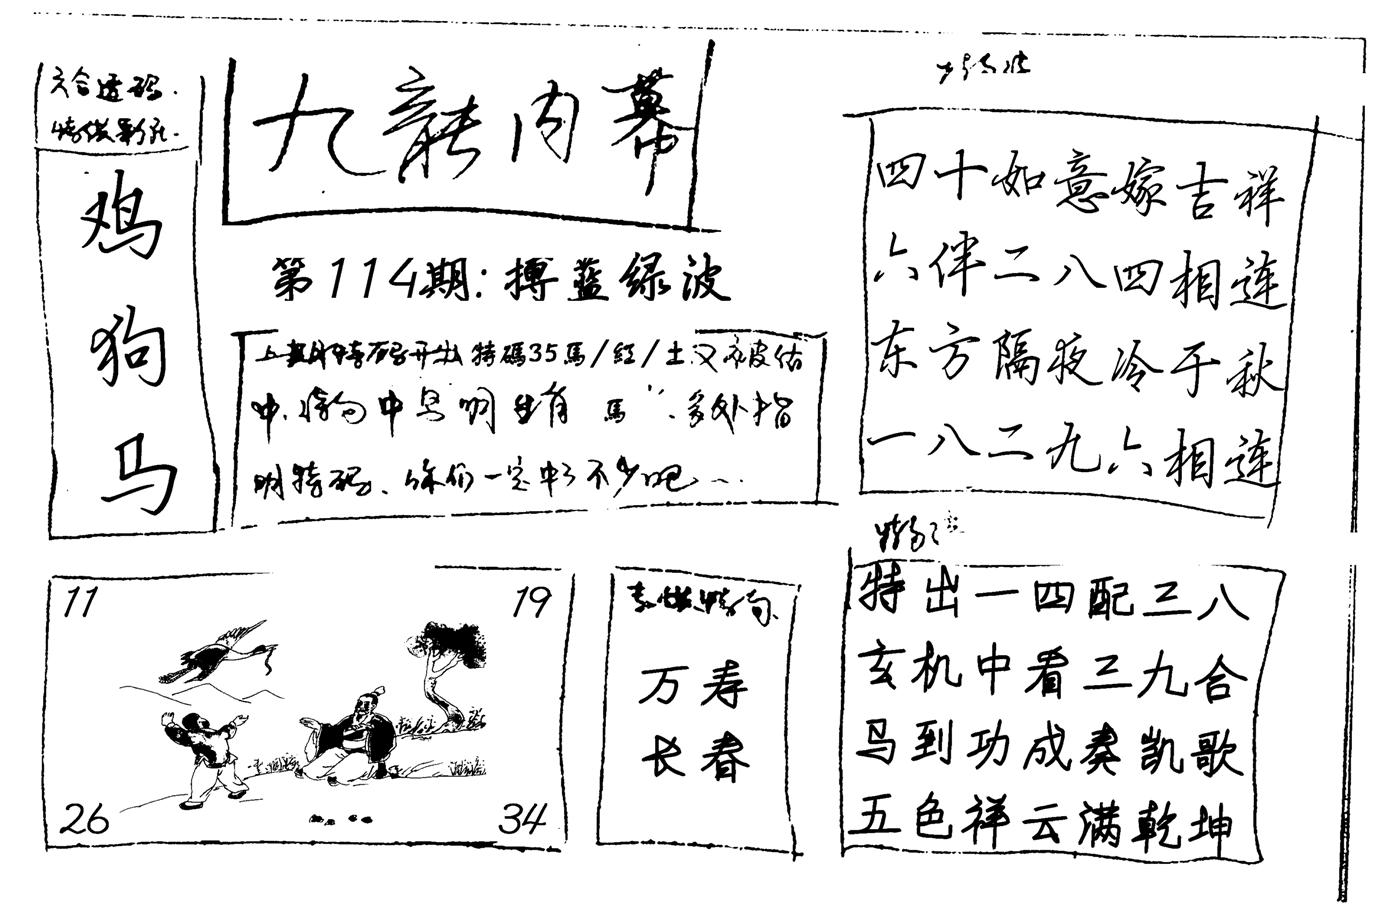 九龍内幕
鸡
狗
马
第114期:搏蓝绿波
特碼35馬/红/土又被估
中.特句中马明生肖馬".多处指
明特码、你们一定中了不少吧…
四十如意嫁吉祥
六伴二八四相连
东方隔夜冷于秋
一八二九六相连
11
19
26
34
万寿
长春
特出一四配三八
玄机中看三九合
马到功成奏凯歌
五色祥云满乾坤